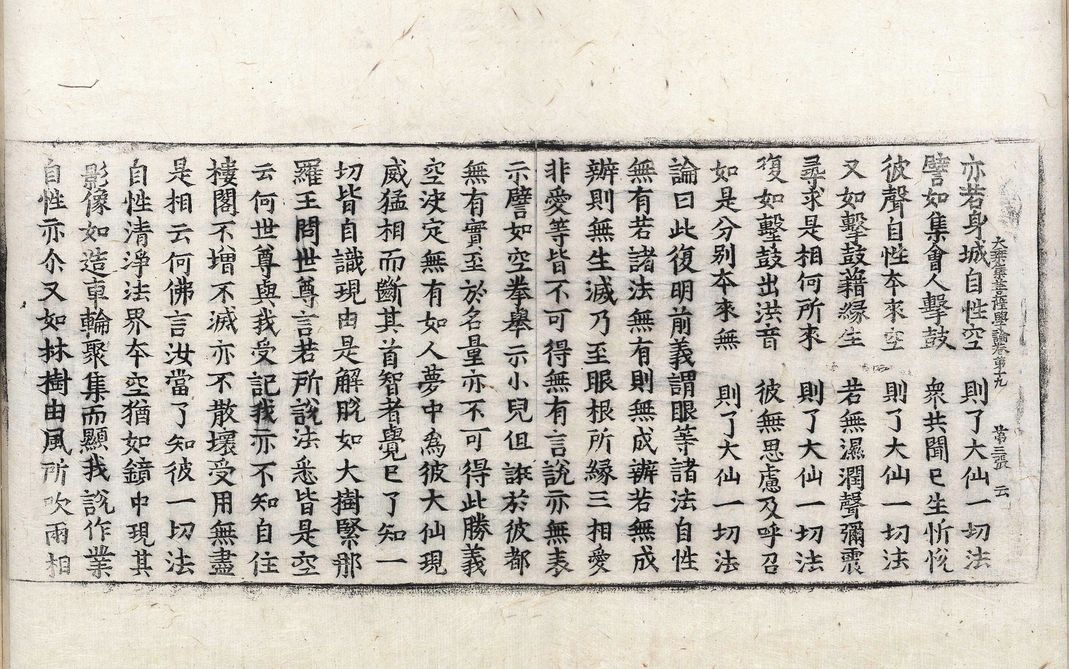 大乘集菩薩學論卷第十九　第三張　云
亦若身城自性空　則了大仙一切法
譬如集會人擊鼓　衆共聞已生忻悅
彼聲自性本來空　則了大仙一切法
又如擊鼓藉緣生　若無濕潤聲彌震
尋求是相何所來　則了大仙一切法
復如擊鼓出洪音　彼無思慮及呼召
如是分別本來無　則了大仙一切法
論曰此復明前義謂眼等諸法自性
無有若諸法無有則無成辦若無成
辦則無生滅乃至眼根所緣三相愛
非愛等皆不可得無有言說亦無表
示譬如空拳舉示小兒但誑於彼都
無有實至於名量亦不可得此勝義
空決定無有如人夢中爲彼大仙現
威猛相而斷其首智者覺已了知一
切皆自識現由是解脫如大樹緊那
羅王問世尊言若所說法悉皆是空
云何世尊與我受記我亦不知自住
樓閣不增不滅亦不散壞受用無盡
是相云何佛言汝當了知彼一切法
自性清淨法界本空猶如鏡中現其
影像如造車輪聚集而顯我說作業
自性亦尒又如林樹由風所吹兩相